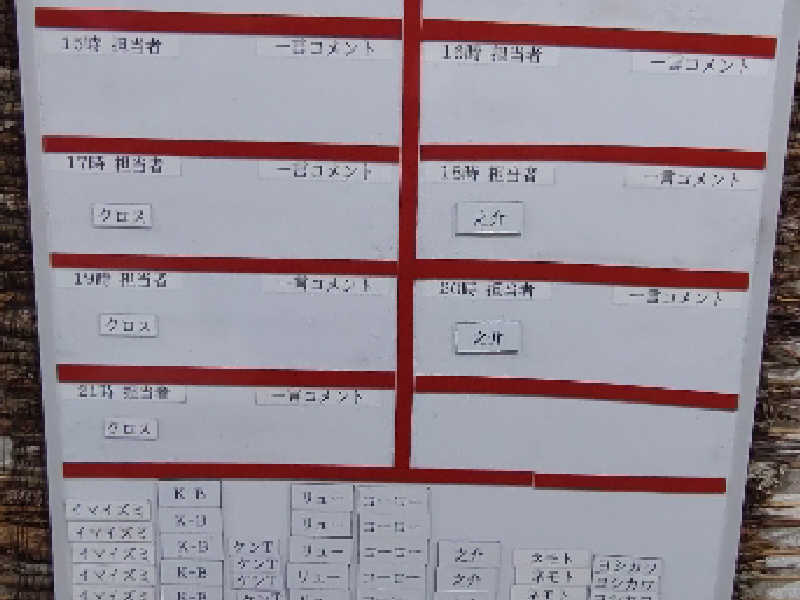 15時 担当者 一言コメント
16時 担当者 一言コメント
17時 担当者 一言コメント
クロス
18時 担当者 一言コメント
之介
19時 担当者 一言コメント
クロス
20時 担当者 一言コメント
之介
21時 担当者 一言コメント
クロス
イマイズミ
イマイズミ
イマイズミ
イマイズミ
イマイズミ
K-B
K-B
K-B
K-B
K-B
ケンT
ケンT
ケンT
ケンT
リュー
リュー
リュー
リュー
リュー
コーロー
コーロー
コーロー
コーロー
コーロー
之介
之介
ネモト
ネモト
ネモト
ヨシカワ
ヨシカワ
ヨシカワ